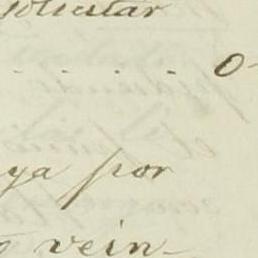 solicitar
. . . . . 0-
ya por
vein-